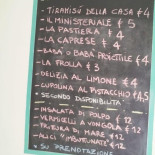 - TIRAMISÙ DELLA CASA €4
- IL MINISTERIALE € 5
- LA PASTIERA € 4
- LA CAPRESE € 4
- BABÀ
- LA FROLLA € 3
- DELIZIA AL LIMONE € 4
- CUPOLINA AL PISTACCHIO €4,5
SECONDO DISPONIBILITÀ
- INSALATA DI POLPO € 12
- VERMICELLI A VONGOLE € 12
- DI MARE € 12
- ALICI € 12
SU PRENOTAZIONE